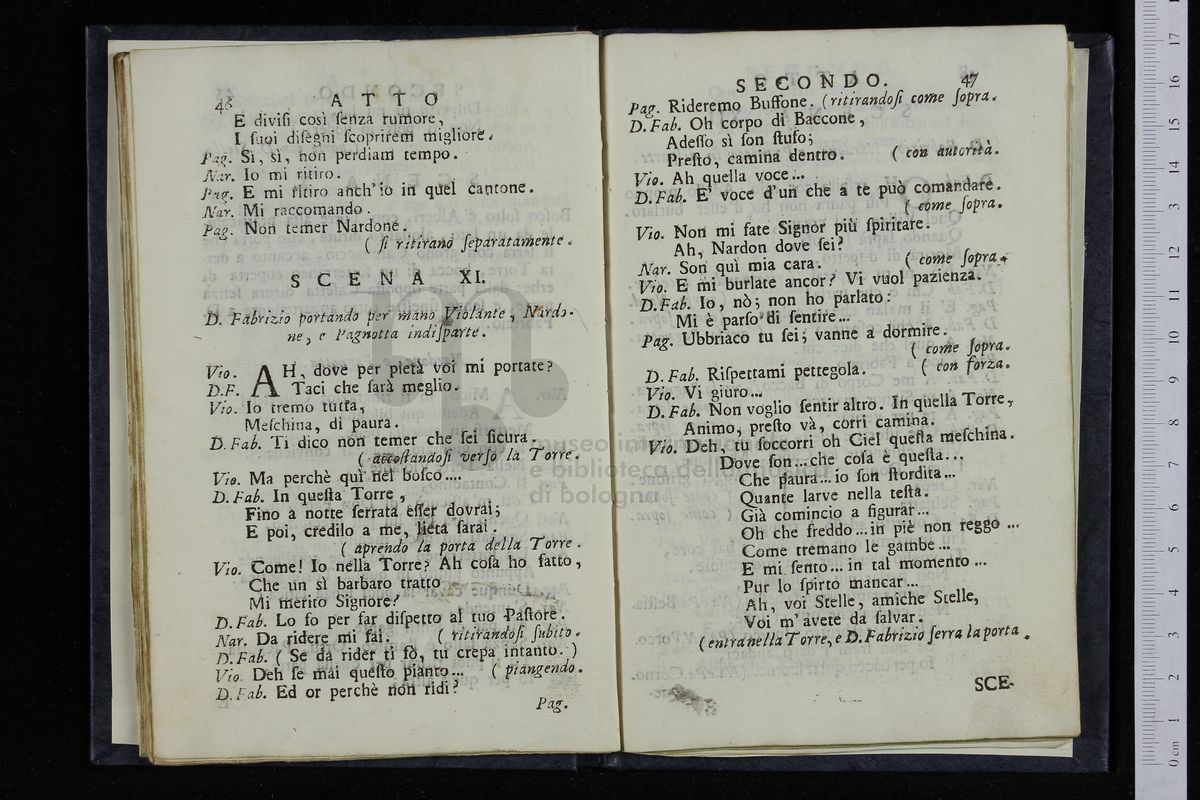 46
ATTO
E divisi così senza rumore,
I suoi disegni scoprirem migliore.
Pag. Sì, sì, non perdiam tempo.
Nar. Io mi ritiro.
Pag. E mi ritiro anch'io in quel cantone.
Nar. Mi raccomando.
Pag. Non temer Nardone.
( si ritirano separatamente.
SCENA XI.
D. Fabrizio portando per mano Violante, Nardo-
ne, e Pagnotta indisparte.
Vio. AH, dove per pietà voi mi portate?
D.F. Taci che sarà meglio.
Vio. Io tremo tutta,
Meschina, di paura.
D. Fab. Ti dico non temer che sei sicura.
( accostandosi verso la Torre.
Vio. Ma perchè quì nel bosco....
D. Fab. In questa Torre,
Fino a notte serrata esser dovrai;
E poi, credilo a me, lieta sarai.
( aprendo la porta della Torre.
Vio. Come! Io nella Torre? Ah cosa ho fatto,
Che un sì barbaro tratto
Mi merito Signore?
D. Fab. Lo fo per far dispetto al tuo Pastore.
Nar. Da ridere mi fai. ( ritirandosi subito.
D. Fab. ( Se da rider ti fò, tu crepa intanto. )
Vio. Deh se mai questo pianto... ( piangendo.
D. Fab. Ed or perchè non ridi?
Pag.
SECONDO. 47
Pag. Rideremo Buffone. (ritirandosi come sopra.
D. Fab. Oh corpo di Baccone,
Adesso sì son stufo;
Presto, camina dentro. ( con autorità.
Vio. Ah quella voce...
D. Fab. E' voce d'un che a te può comandare.
( come sopra.
Vio. Non mi fate Signor più spiritare.
Ah, Nardon dove sei?
Nar. Son quì mia cara. ( come sopra.
Vio. E mi burlate ancor? Vi vuol pazienza.
D. Fab. Io, nò; non ho parlato:
Mi è parso di sentire...
Pag. Ubbriaco tu sei; vanne a dormire.
( come sopra.
D. Fab. Rispettami pettegola. ( con forza.
Vio. Vi giuro...
D. Fab. Non voglio sentir altro. In quella Torre,
Animo, presto và, corri camina.
Vio. Deh, tu soccorri oh Ciel questa meschina.
Dove son...che cosa è questa...
Che paura...io son stordita...
Quante larve nella testa.
Già comincio a figurar...
Oh che freddo...in piè non reggo...
Come tremano le gambe...
E mi sento...in tal momento...
Pur lo spirto mancar...
Ah, voi Stelle, amiche Stelle,
Voi m'avete da salvar.
(entra nella Torre, e D. Fabrizio serra la porta.
SCE-
museo internazionale
e biblioteca della musica
di bologna